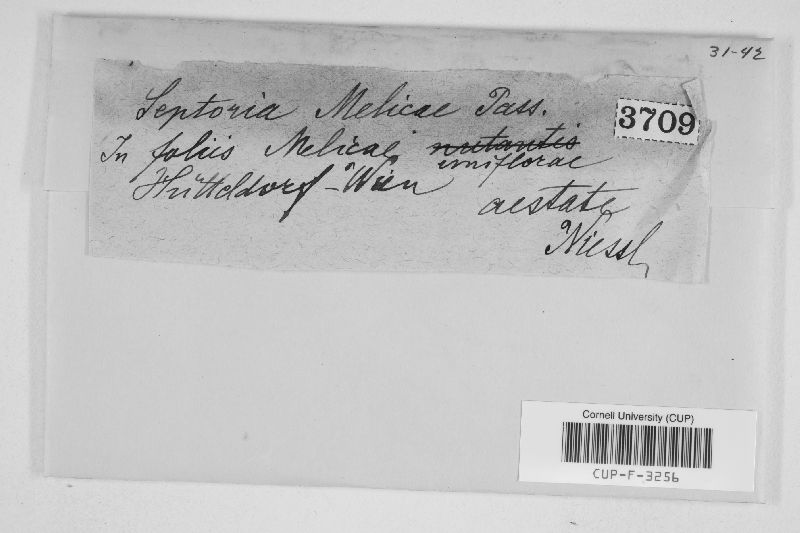 31-42
Septoria Melicae Pass.
3709
In foliis Melicae nutantis
uniflorae
Hütteldorf-Wien aestate
Niessl
Cornell University (CUP)
CUP-F-3256